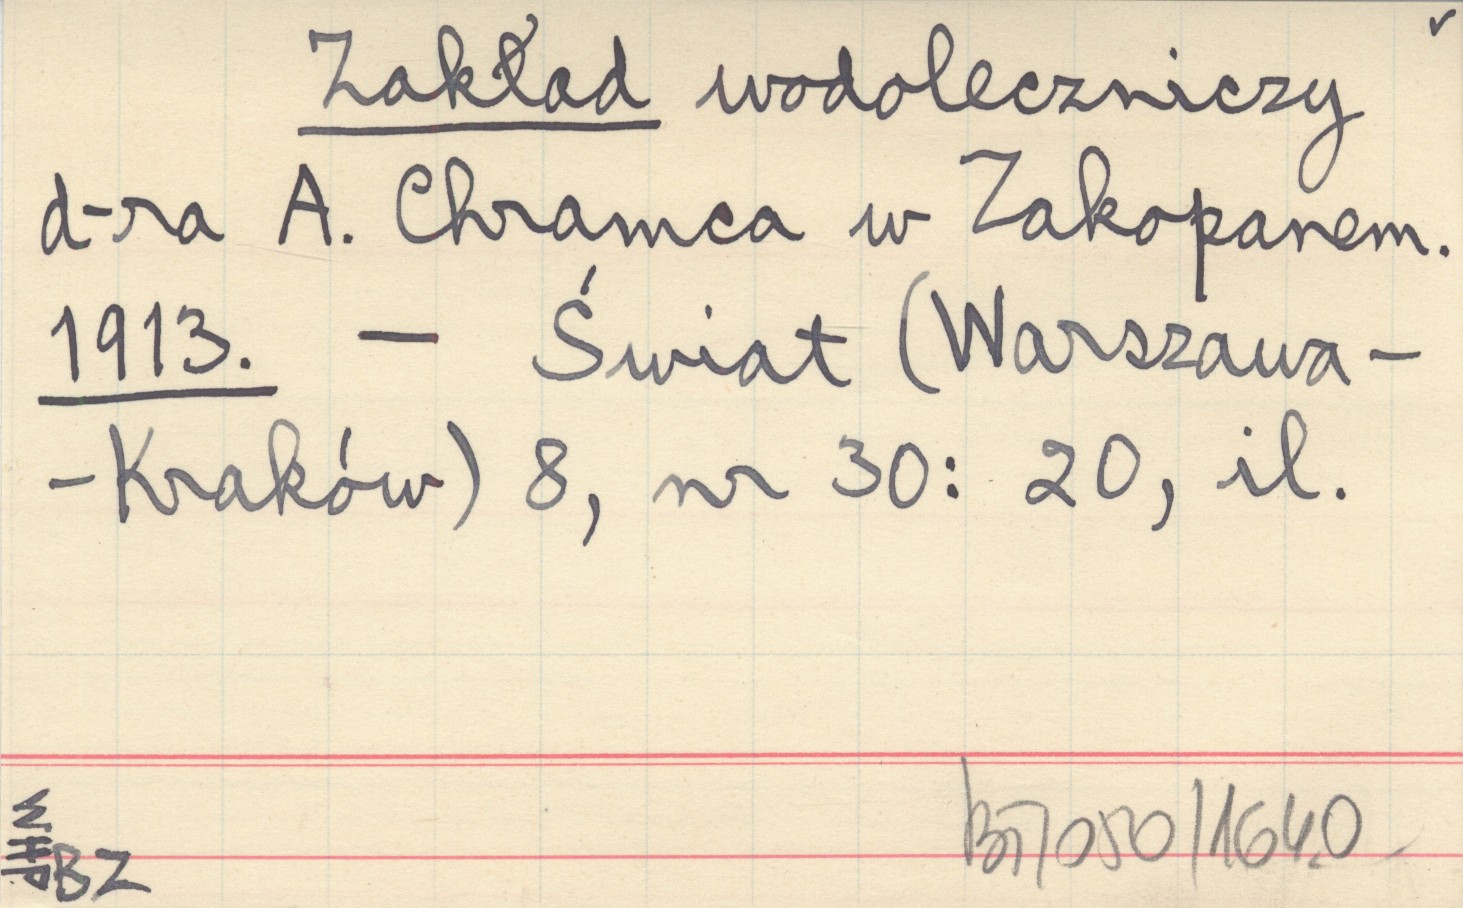 Zakład wodoleczniczy
d-ra A. Chramca w Zakopanem.
1913. — Świat (Warszawa-
-Kraków) 8, nr 30: 20, il.
BZ